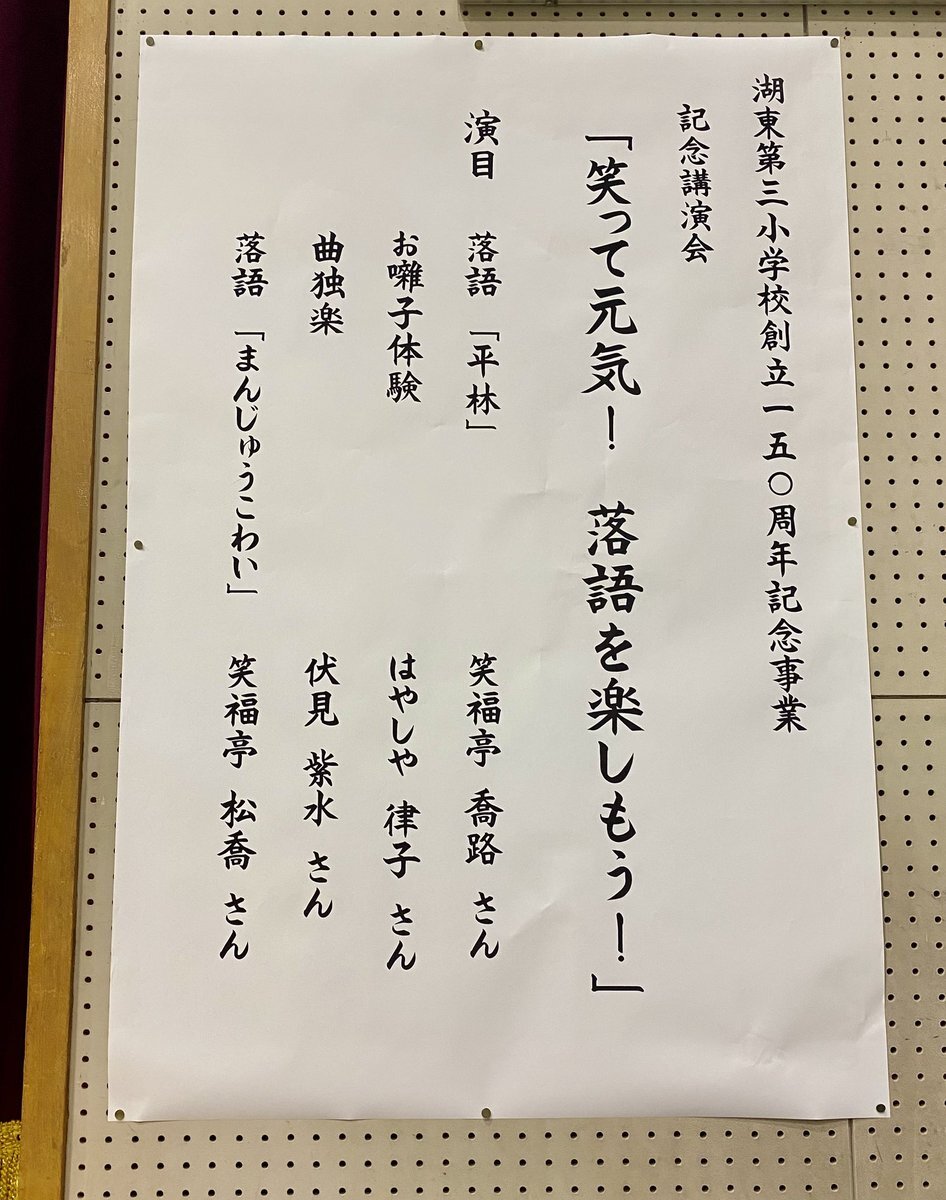 湖東第三小学校創立一五〇周年記念事業
記念講演会
「笑って元気！　落語を楽しもう！」
演目　落語　「平林」　笑福亭　喬路　さん
お囃子体験　はやしや　律子　さん
曲独楽　伏見　紫水　さん
落語　「まんじゅうこわい」　笑福亭　松喬　さん